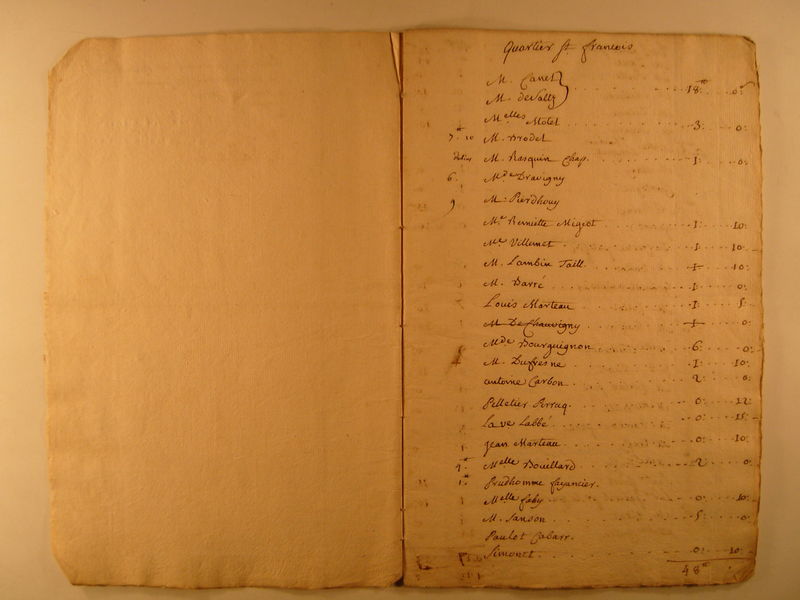 Quartier st francois
M. Canet
M. deVally 18: 0:
Melles Motet 3: 0:
7 10 M. Brodet
M. Rasquin Chap. 1: 0:
6. Mde Dravigny
9 M. Pierdhouy
Me Remiette Migeot 1: 10:
Me Villemet 1: 10:
M. Lambin Taill. 1: 10:
M. Barré 1: 0:
Louis Marteau 1: 5:
M De Chauvigny 1: 0:
Mde Bourguignon 6: 0:
M. Dufresne 1: 10:
antoine Carbon 2: 0:
Pelletier Perruq. 0: 12:
La ve Labbé 0: 15:
Jean Marteau 0: 10:
4. Melle Bouillard 2 0:
1. Prudhomme fayancier.
Melle faby 0: 10:
M. Sanson 5: 0
Paulet Cabarr.
Simonet 0: 10:
48